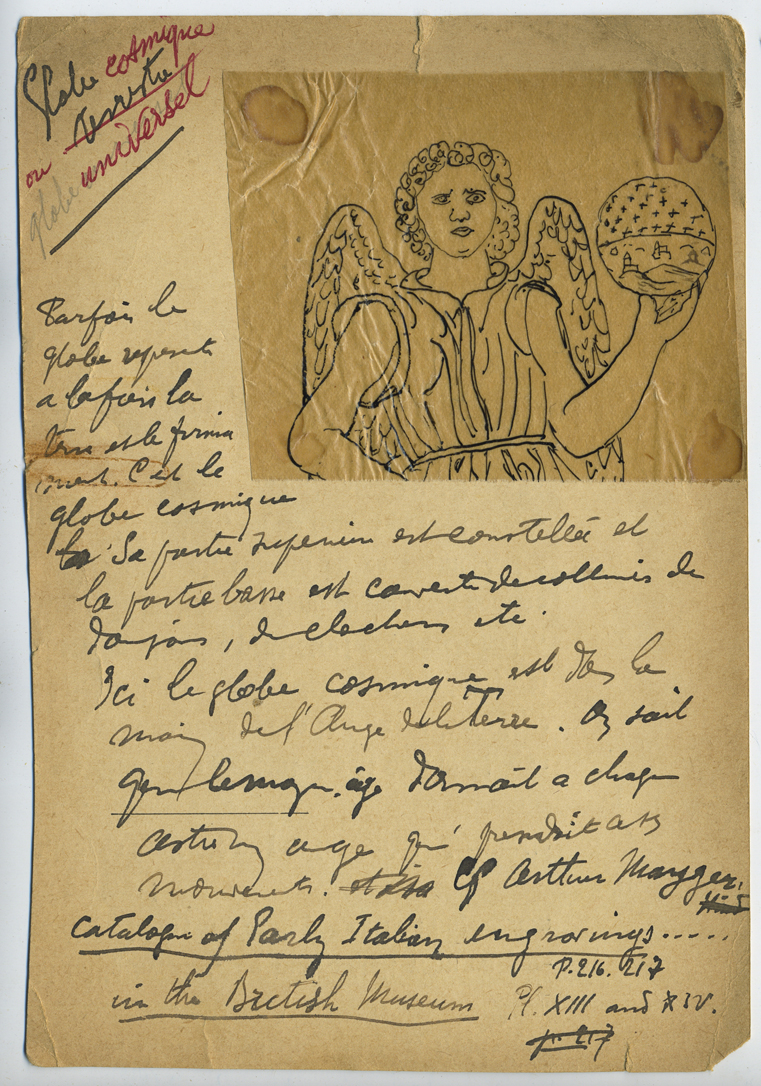 Globe cosmique
terrestre
ou universel
globe
Parfois le
globe represente
a la fois la
terre et le firma
ment. C'est le
globe cosmique
Sa partie superieure est constellée et
la partie basse est couverte de collines de
donjons, de clochers etc.
Ici le globe cosmique est dans la
main de l'Ange de la Terre. On sait
que le moyen-âge donnait a chaque
astre un ange qui
mouvements. Cf Arthur Mayger.
Hind
catalogue of Early Italian engravings.....
P. 216. 217
in the British Museum Pl. XIII and XIV.
p. 217